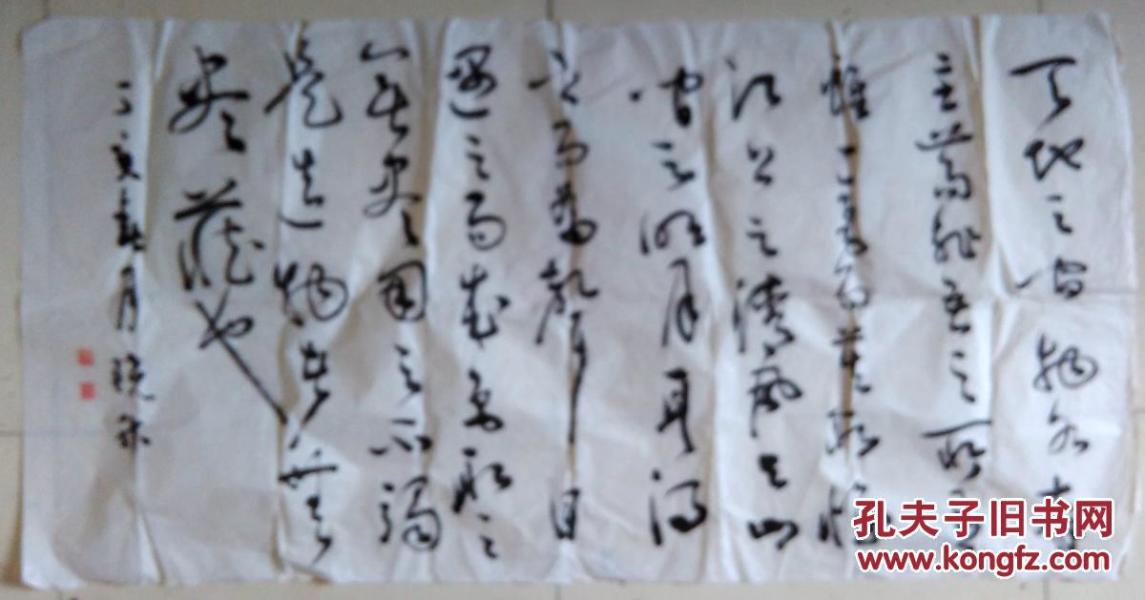 天地之間物各有
主苟非吾之所有
雖一毫而莫取惟
江上之清風与山
間之明月耳得
之而為聲目
遇之而成色取之
無禁用之不竭
是造物者無
尽藏也
丁亥春月曉
孔夫子旧书网
www.kongfz.com